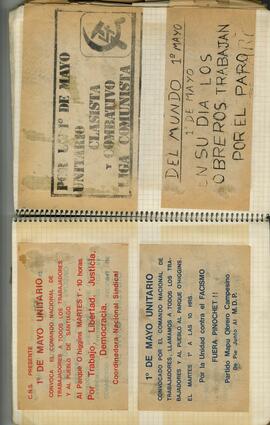 POR UN 1º DE MAYO
UNITARIO
CLASISTA
Y COMBATIVO
LIGA COMUNISTA
DEL MUNDO 1º MAYO
1º DE MAYO
EN SU DIA LOS
OBREROS TRABAJAN
POR EL PARO
C.N.S. PRESENTE
1º DE MAYO UNITARIO
CONVOCA EL COMANDO NACIONAL DE
TRABAJADORES A TODOS LOS TRABAJADORES
Y AL PUEBLO DE SANTIAGO
Al Parque O'higgins MARTES 1º - 10 horas
Por Trabajo, Libertad, Justicia,
Democracia.
Coordinadora Nacional Sindical
1º DE MAYO UNITARIO
CONVOCADO POR EL COMANDO NACIONAL DE
TRABAJADORES, LLAMAMOS A TODOS LOS TRA-
BAJADORES Y AL PUEBLO AL PARQUE O'HIGGINS.
EL MARTES 1º A LAS 10 HRS.
Por la Unidad contra el FACISMO
FUERA PINOCHET !!
Partido Mapu Obrero Campesino
De Pie Junto Al M.D.P.